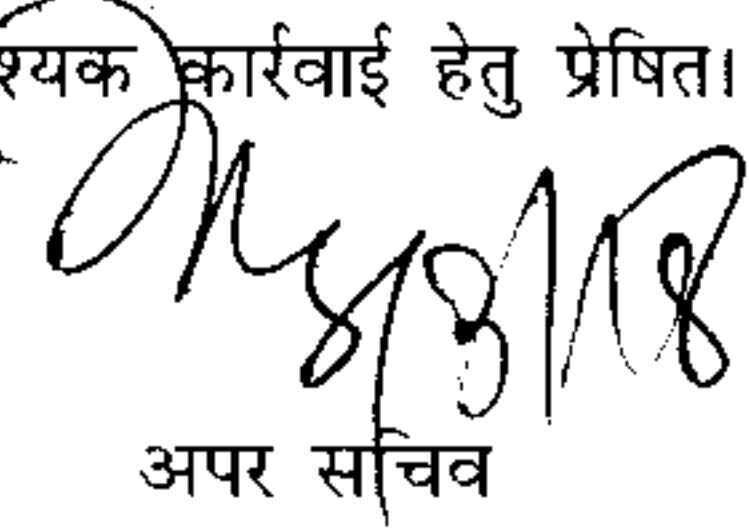 श्यक कार्रवाई हेतु प्रेषित।
अपर सचिव